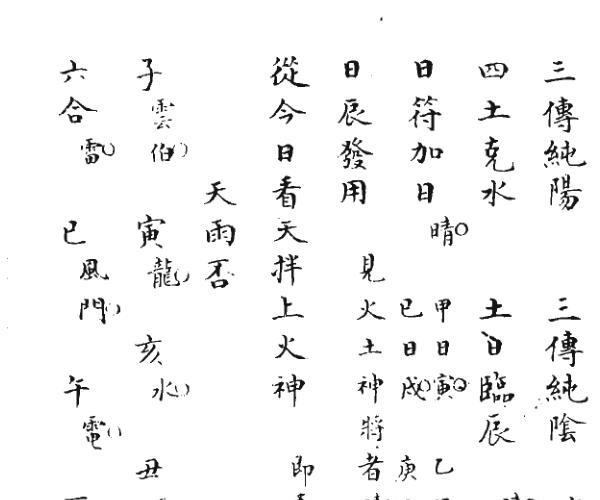 三傳純陽 三傳純陰
四土克水 土日臨辰
日符加日 晴 甲日寅 乙
巳日戌 庚
日辰發用 見火土神將者
從今日看天拌上火神 即
天雨否
子雲伯 寅龍 亥水 丑
六合雷 巳風門 午電